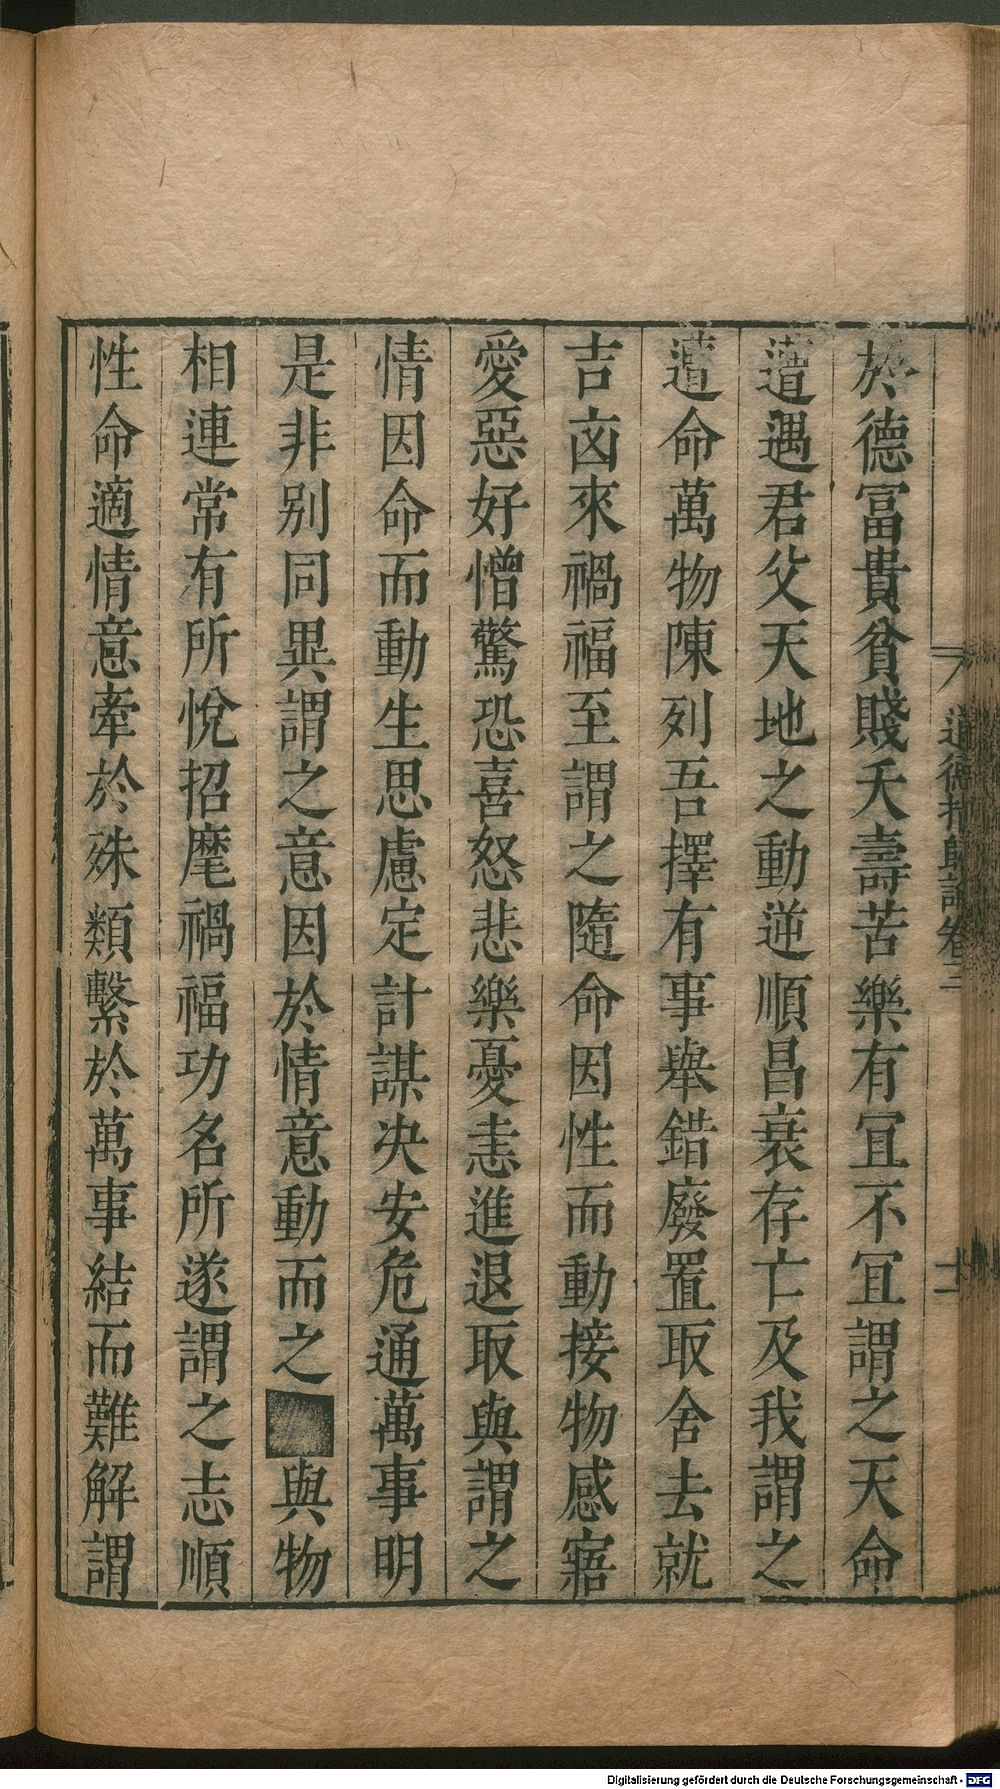 於德冨貴貧賤夭壽苦樂有冝不冝謂之天命
遭遇君父天地之動逆順昌衰存亡及我謂之
遭命萬物陳列吾擇有事舉錯廢置取舍去就
吉凶來禍福至謂之隨命因性而動接物感寤
愛惡好憎驚恐喜怒悲樂憂恚進退取與謂之
情因命而動生思慮定計謀决安危通萬事明
是非别同異謂之意因於情意動而之■與物
相連常有所悅招麾禍福功名所遂謂之志順
性命適情意牽於殊類繫於萬事結而難解謂
道德指歸論卷三
十一
Digitalisierung gefördert durch die Deutsche Forschungsgemeinschaft - DFG